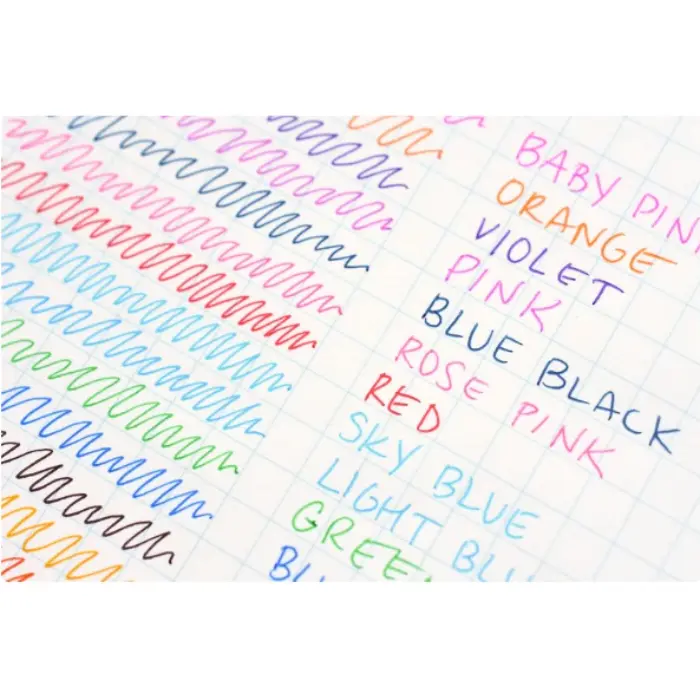 BABY PIN
ORANGE
VIOLET
PINK
BLUE BLACK
ROSE PINK
RED
SKY BLUE
LIGHT BLU
GREEN
BL